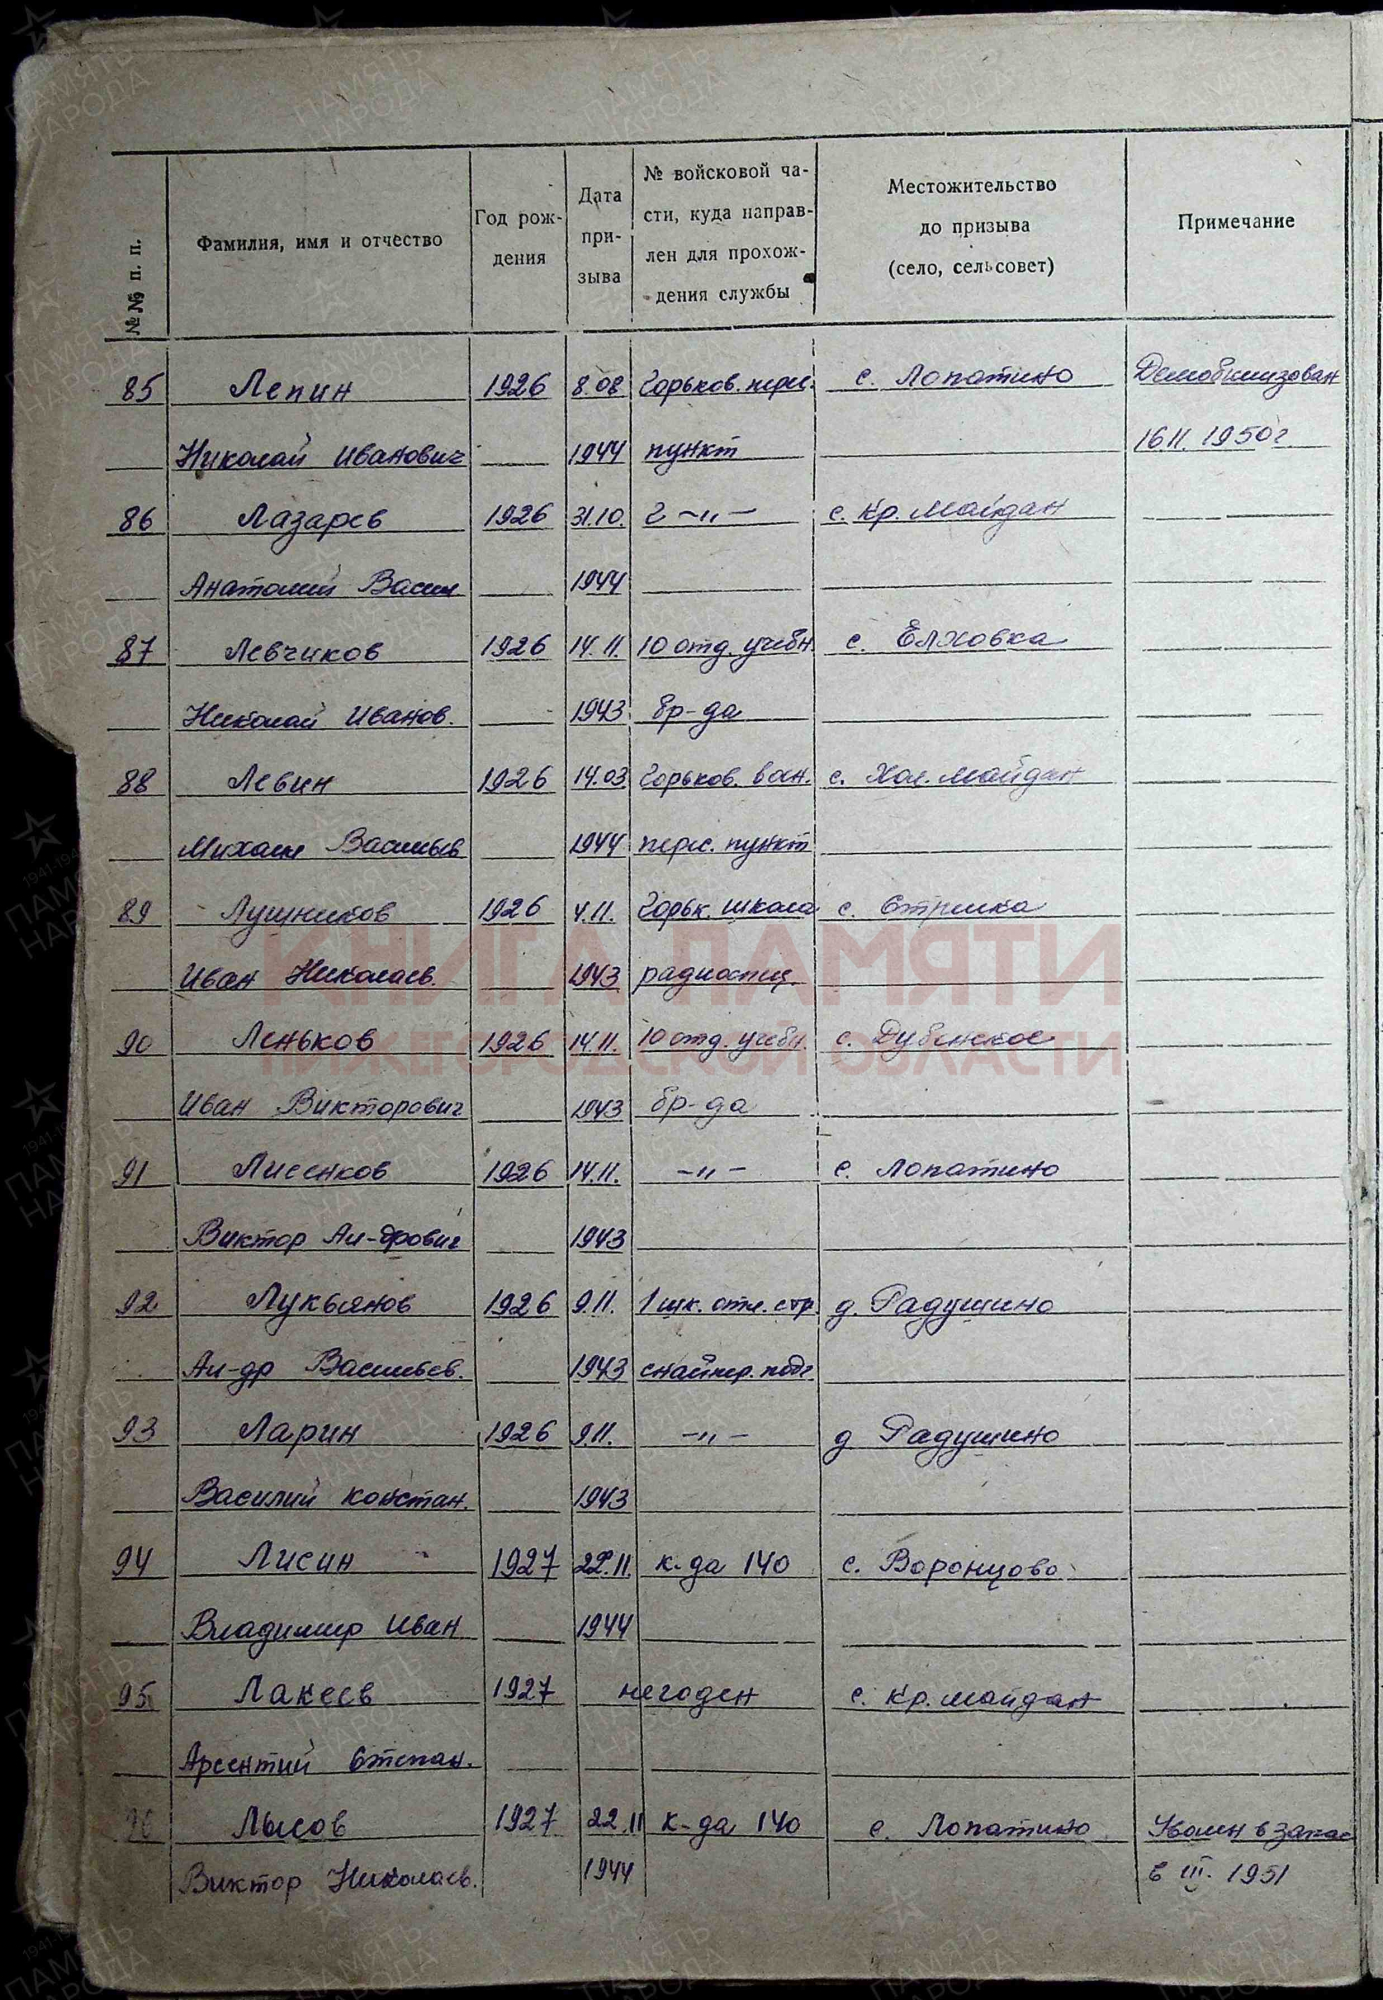 №№ п. п.
Фамилия, имя и отчество
Год рож-
дения
Дата
при-
зыва
№ войсковой ча-
сти, куда направ-
лен для прохож-
дения службы
Местожительство
до призыва
(село, сельсовет)
Примечание
85 Лепин 1926 8.08 Горьков. перес. с. Лопатино Демобилизован
Николай Иванович 1944 пункт 16.11. 1950г.
86 Лазарев 1926 31.10. г -"- с. Кр. Майдан
Анатолий Васил 1944
87 Левчиков 1926 14.11. 10 отд. учебн. с. Ёлховка
Николай Иванов. 1943 бр-да
88 Левин 1926 14.03 Горьков. воен. с. Хол. Майдан
Михаил Васильев 1944 перес. пункт
89 Лушников 1926 4.11. Горьк. школа с. Стрелка
Иван Николаев. 1943 радиоспец.
90 Леньков 1926 14.11. 10 отд. учебн. с. Дубенское
Иван Викторович 1943 бр-да
91 Лисенков 1926 14.11. -"- с. Лопатино
Виктор Ал-дрович 1943
92 Лукьянов 1926 9.11. 1 шк. отл. стр. д. Радушино
Ал-др Васильев. 1943 снайпер. подг
93 Ларин 1926 9.11. -"- д Радушино
Василий Констан. 1943
94 Лисин 1927 22.11. к-да 140 с. Воронцово
Владимир Иван 1944
95 Лакеев 1927 негоден с. Кр. Майдан
Арсентий Степан.
96 Лысов 1927 22.11 к-да 140 с. Лопатино Уволен в запас
Виктор Николаев. 1944 в III. 1951
КНИГА ПАМЯТИ
НИЖЕГОРОДСКОЙ ОБЛАСТИ
ПАМЯТЬ
НАРОДА
1941-1945